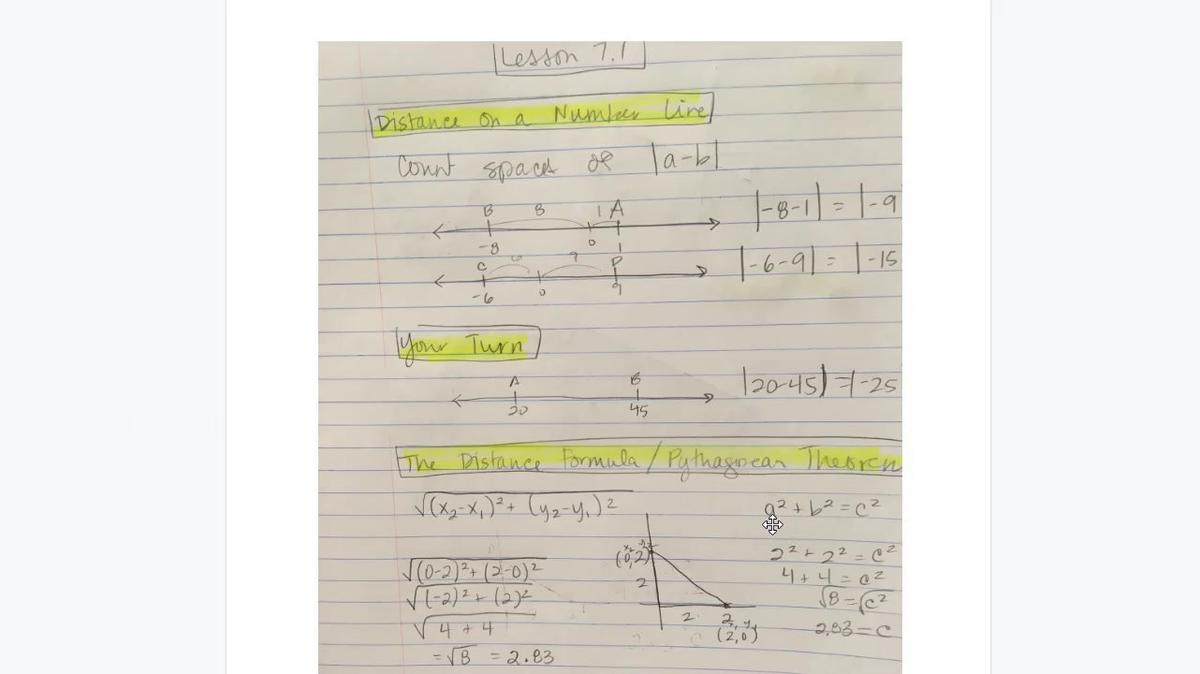 Lesson 7.1
Distance on a Number Line
Count spaces or |a-b|
B 8 1 A
-8 0 1
|-8-1| = |-9
C 6 9 P
-6 0 9
|-6-9| = |-15
Your Turn
A B
20 45
|20-45| = |-25
The Distance Formula / Pythagorean Theorem
√(x₂-x₁)²+(y₂-y₁)²
a²+b²=c²
√(0-2)²+(2-0)²
(0,2)
2²+2²=c²
√(-2)²+(2)²
2
4+4=c²
√4+4
2
(2,0)
√8=√c²
=√8 = 2.83
2.83=c